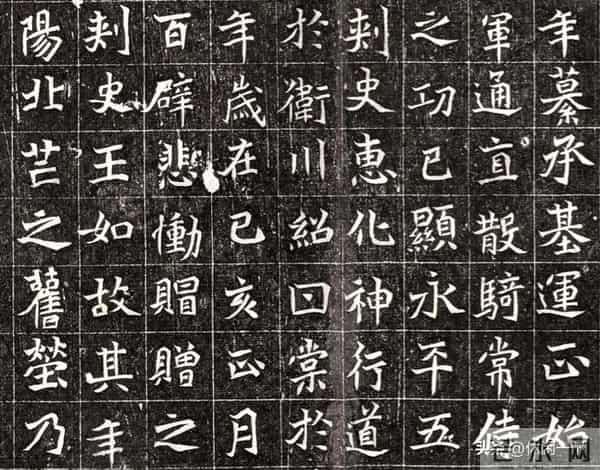 年纂承基運正始
軍通直散騎常侍
之功已顯永平五
刺史惠化神行道
於衛川紹曰棠於
年歲在己亥正月
百辟悲慟賵贈之
刺史王如故其年
陽北芒之舊塋乃